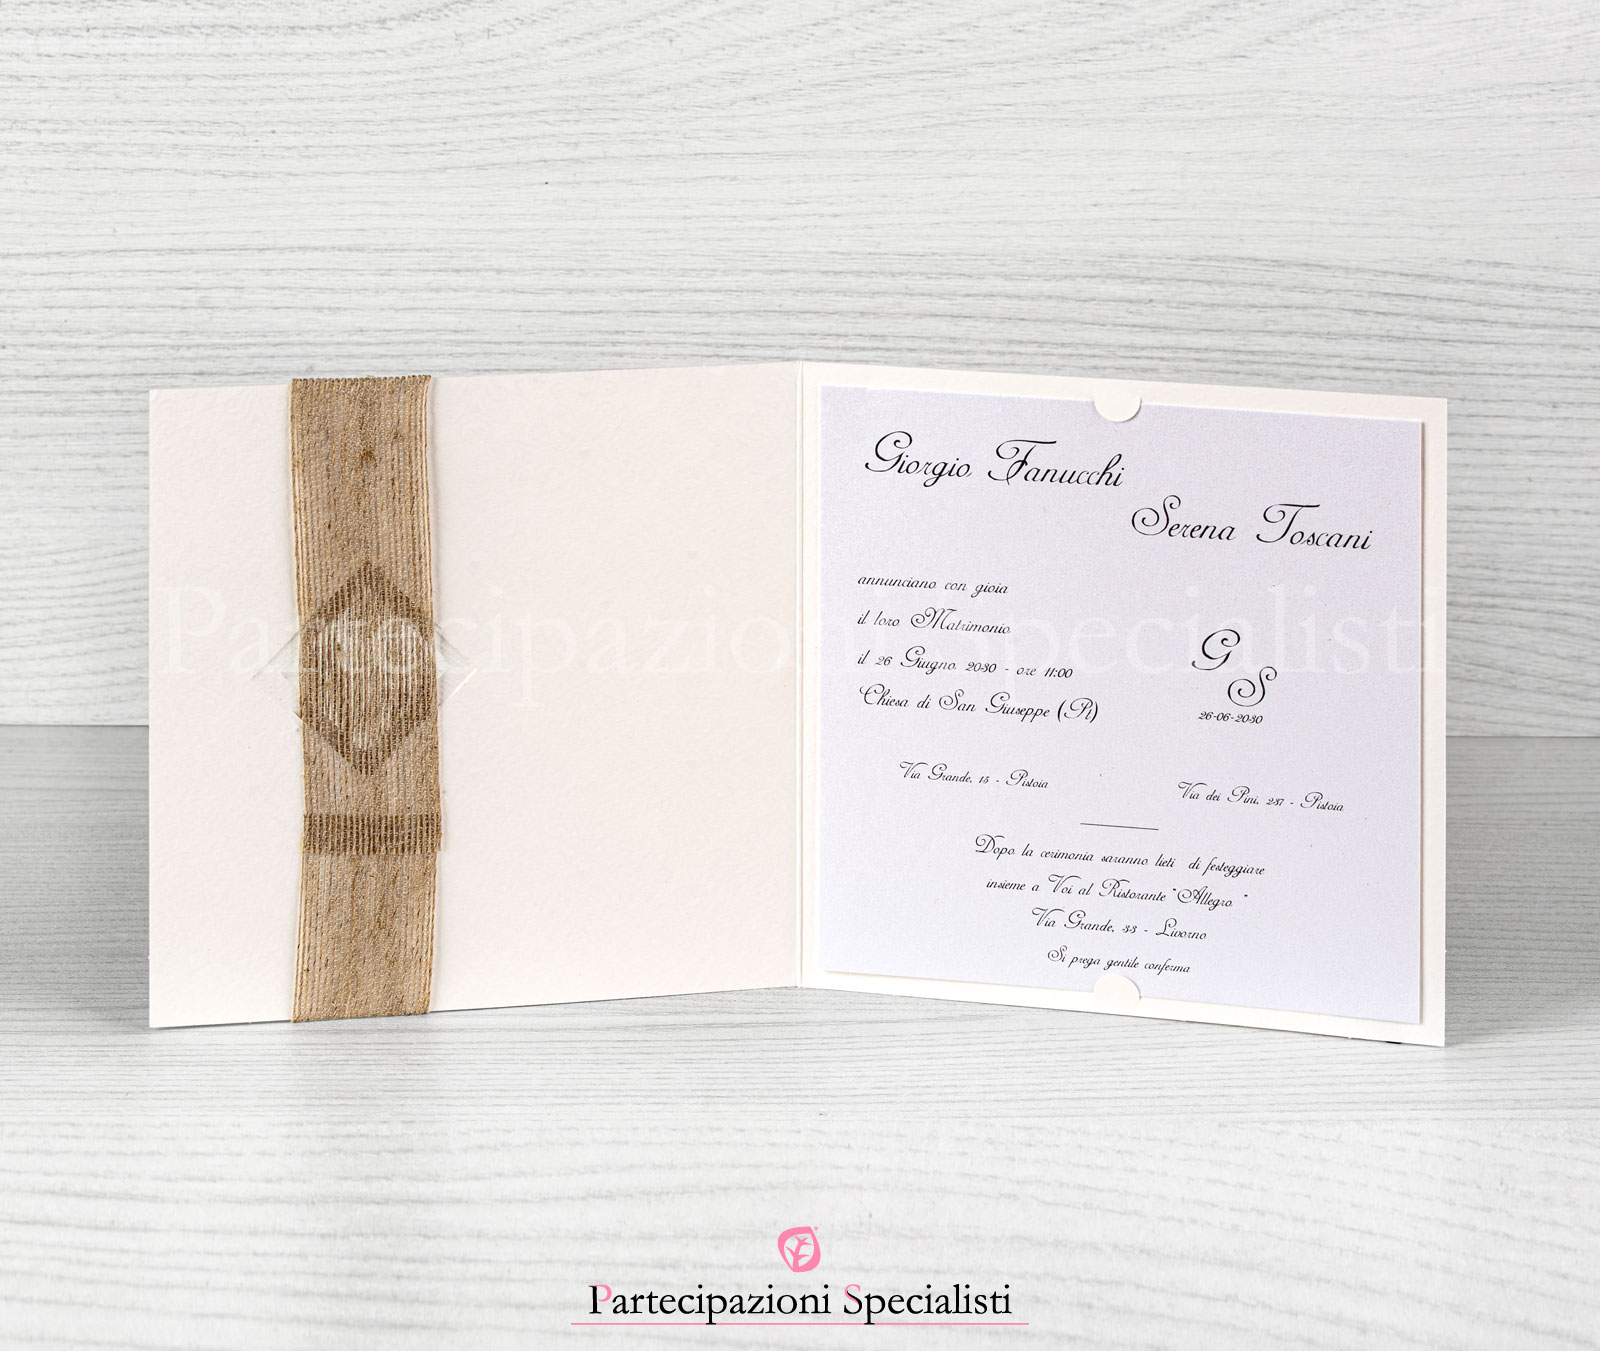 Giorgio Fanucchi
Serena Toscani
annunciano con gioia
il loro Matrimonio
il 26 Giugno 2030 - ore 11:00
Chiesa di San Giuseppe (Pi)
G
S
26-06-2030
Via Grande, 15 - Pistoia
Via dei Pini, 237 - Pistoia
Dopo la cerimonia saranno lieti di festeggiare
insieme a Voi al Ristorante "Allegro "
Via Grande, 33 - Livorno
Si prega gentile conferma
Partecipazioni Specialisti
Partecipazioni Specialisti